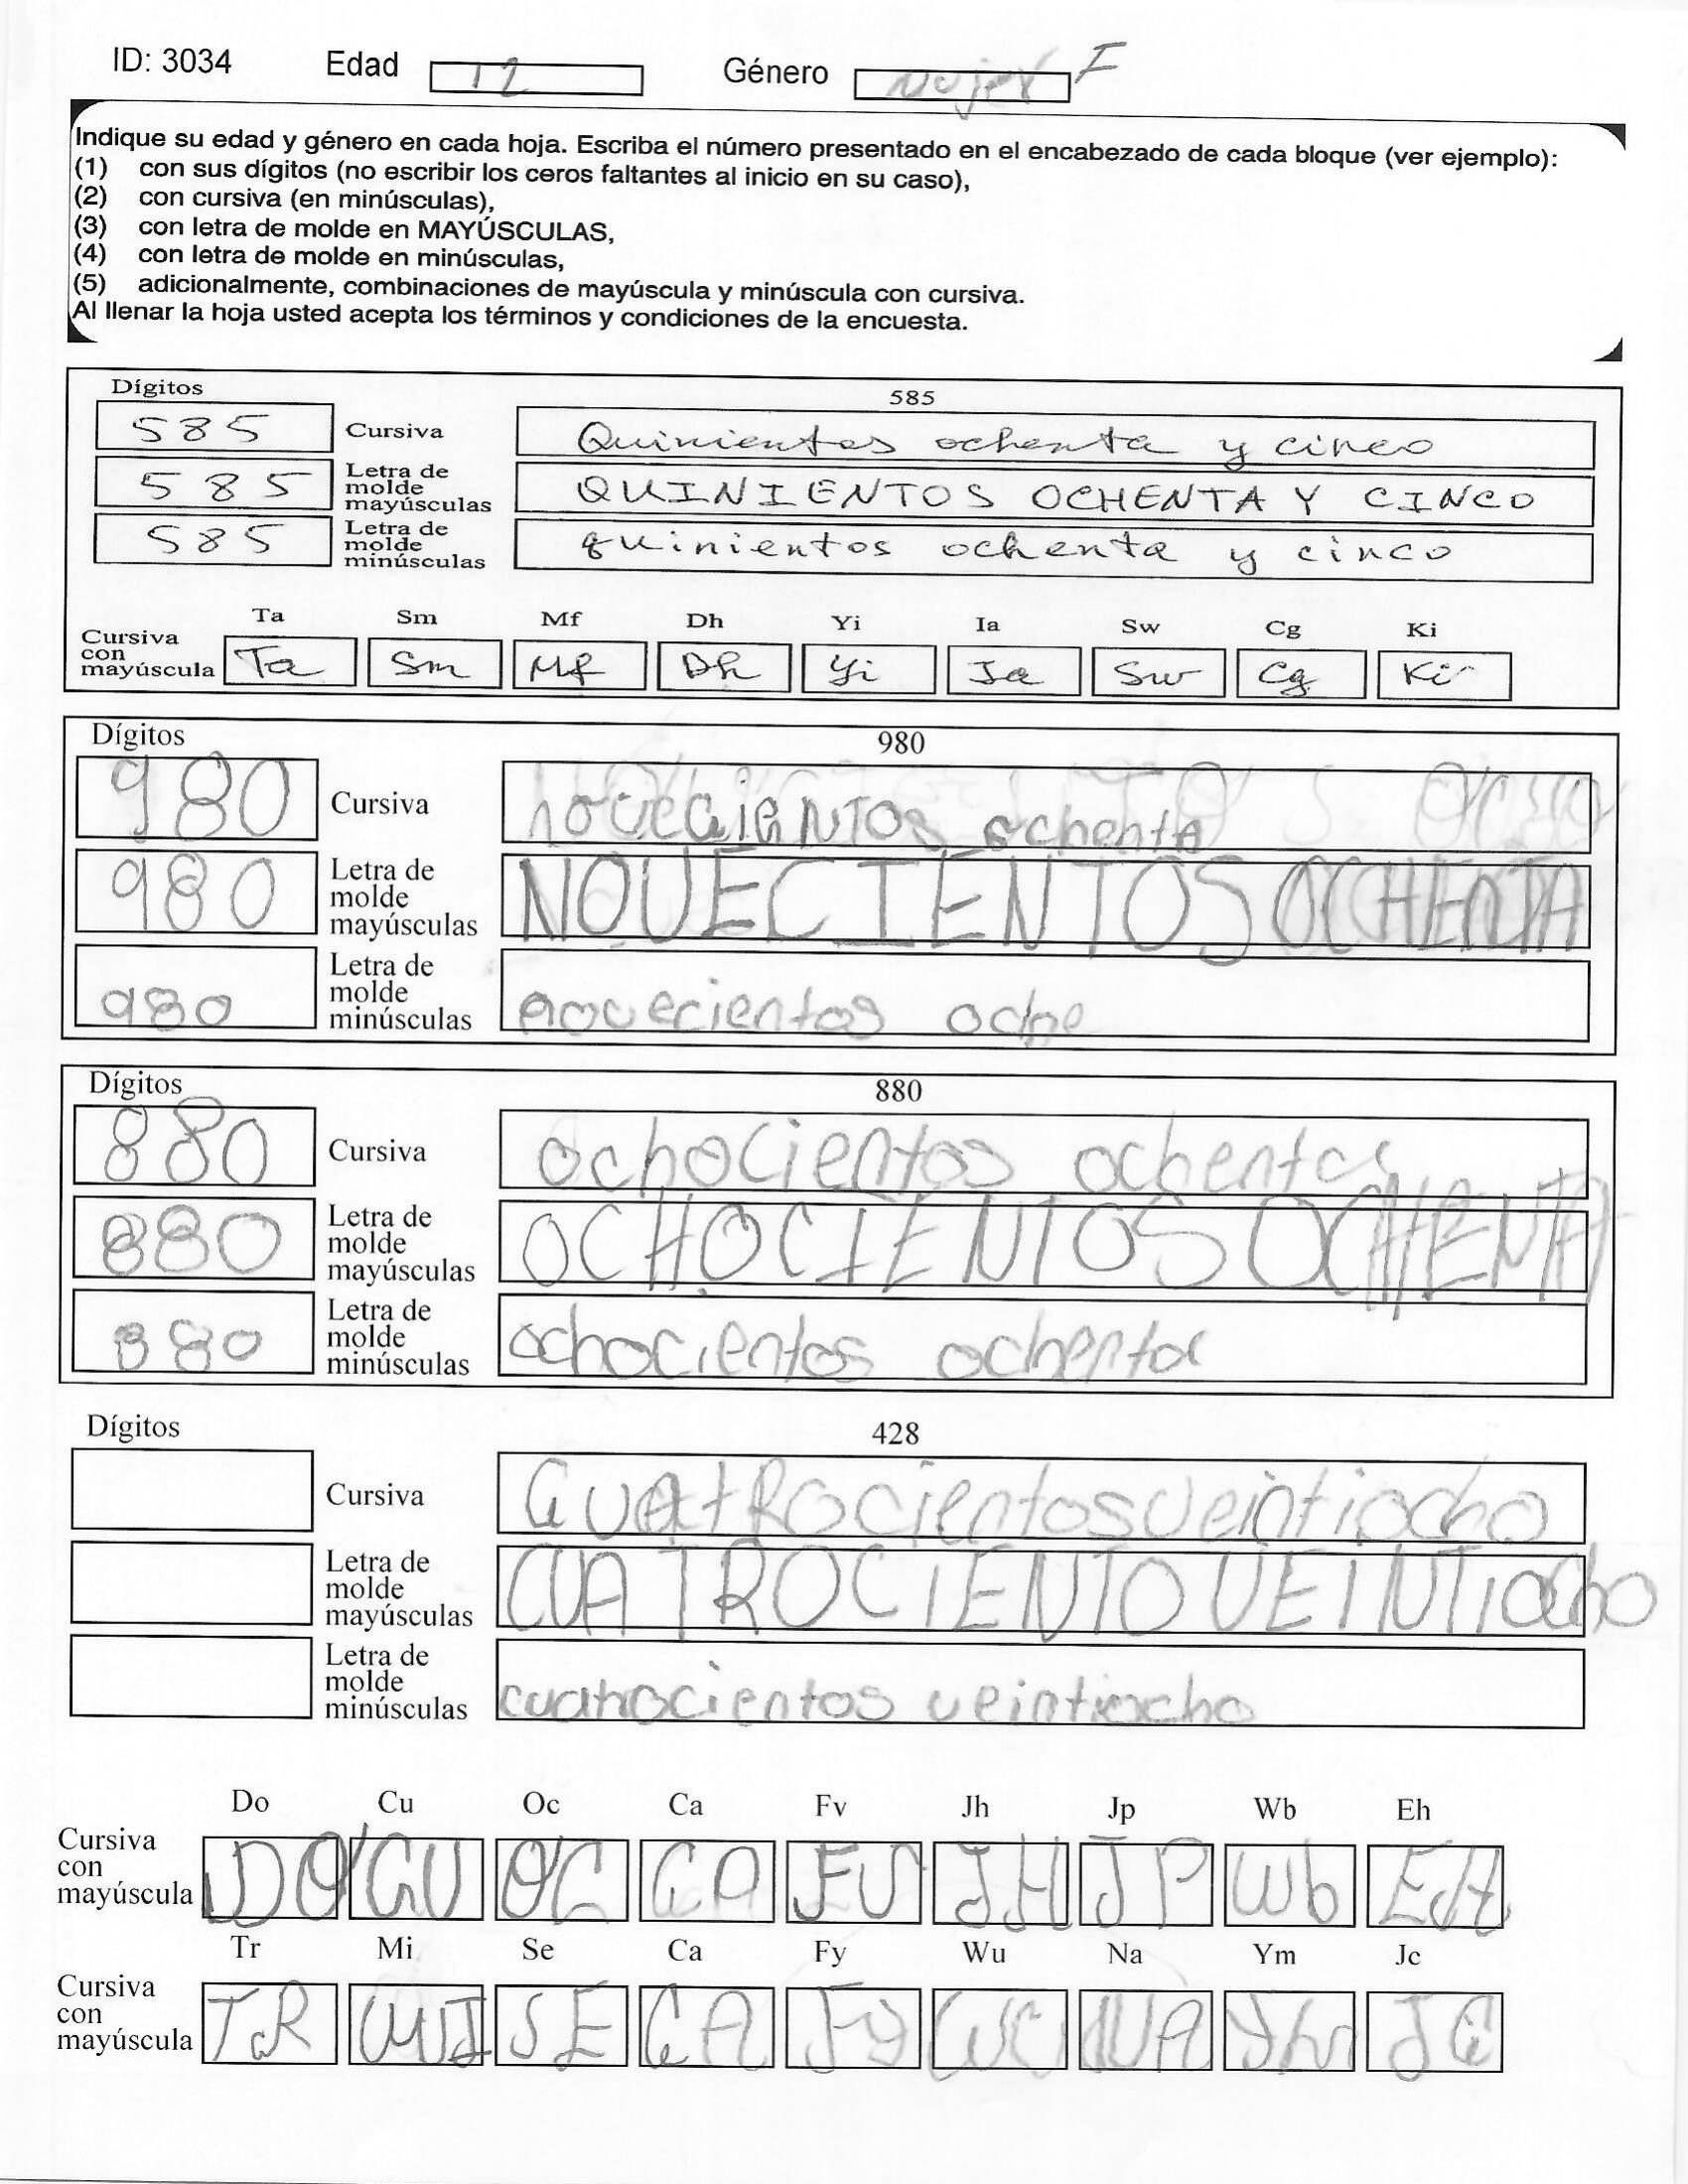 ID: 3034 Edad 12 Género mujer F
Indique su edad y género en cada hoja. Escriba el número presentado en el encabezado de cada bloque (ver ejemplo):
(1) con sus dígitos (no escribir los ceros faltantes al inicio en su caso),
(2) con cursiva (en minúsculas),
(3) con letra de molde en MAYÚSCULAS,
(4) con letra de molde en minúsculas,
(5) adicionalmente, combinaciones de mayúscula y minúscula con cursiva.
Al llenar la hoja usted acepta los términos y condiciones de la encuesta.
Dígitos 585
585 Cursiva Quinientos ochenta y cinco
585 Letra de molde mayúsculas QUINIENTOS OCHENTA Y CINCO
585 Letra de molde minúsculas quinientos ochenta y cinco
Ta Sm Mf Dh Yi Ia Sw Cg Ki
Cursiva con mayúscula Ta Sm Mf Dh Yi Ia Sw Cg Ki
Dígitos 980
980 Cursiva novecieNTOs ochentA
980 Letra de molde mayúsculas NOVECIENTOS OCHENTA
980 Letra de molde minúsculas novecientos oche
Dígitos 880
880 Cursiva ochocientos ochenta
880 Letra de molde mayúsculas OCHOCIENTOS OCHENTA
880 Letra de molde minúsculas ochocientos ochenta
Dígitos 428
Cursiva CuatRocientosveintiocho
Letra de molde mayúsculas CUATROCIENTO VEINTIocho
Letra de molde minúsculas cuatrocientos veintiocho
Do Cu Oc Ca Fv Jh Jp Wb Eh
Cursiva con mayúscula DO CU OC CA FV JH JP Wb EH
Tr Mi Se Ca Fy Wu Na Ym Jc
Cursiva con mayúscula TR MI SE CA Fy WU NA Ym JC